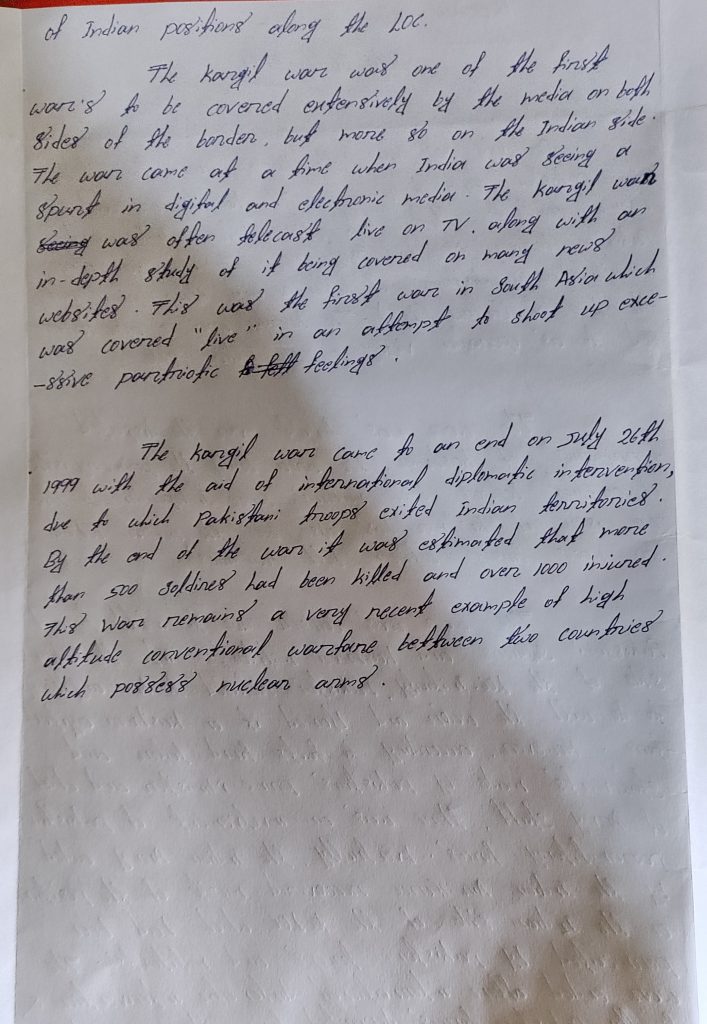 of Indian positions along the LOC.
The kargil war was one of the first
war's to be covered extensively by the media on both
sides of the border, but more so on the Indian side.
The war came at a time when India was seeing a
spurt in digital and electronic media. The kargil war
seeing was often telecast live on TV, along with an
in-depth study of it being covered on many news
websites. This was the first war in South Asia which
was covered "live" in an attempt to shoot up exce-
-ssive partriotic feelings.
The kargil war came to an end on July 26th
1999 with the aid of international diplomatic intervention,
due to which Pakistani troops exited Indian territories.
By the end of the war it was estimated that more
than 500 soldires had been killed and over 1000 injured.
This war remains a very recent example of high
altitude conventional warfare bettween two countries
which possess nuclear arms.